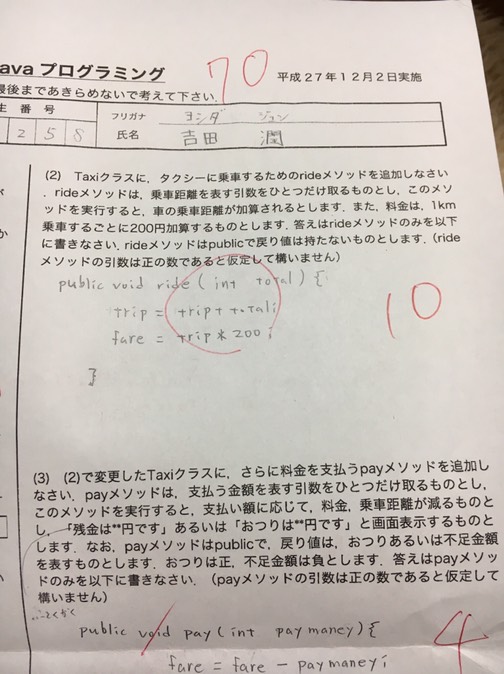 ava プログラミング
70
平成27年12月2日実施
最後まであきらめないで考えて下さい.
生 番 号
2 5 8
フリガナ ヨシダ ジュン
氏名 吉田 潤
(2) Taxiクラスに,タクシーに乗車するためのrideメソッドを追加しなさい
.rideメソッドは,乗車距離を表す引数をひとつだけ取るものとし,このメソ
ッドを実行すると,車の乗車距離が加算されるとします.また,料金は,1km
乗車するごとに200円加算するものとします.答えはrideメソッドのみを以下
に書きなさい.rideメソッドはpublicで戻り値は持たないものとします.(ride
メソッドの引数は正の数であると仮定して構いません)
public void ride( int total) {
trip = trip + total;
fare = trip * 200;
}
10
(3) (2)で変更したTaxiクラスに,さらに料金を支払うpayメソッドを追加し
なさい.payメソッドは,支払う金額を表す引数をひとつだけ取るものとし,
このメソッドを実行すると,支払い額に応じて,料金,乗車距離が減るものと
し,「残金は**円です」あるいは「おつりは**円です」と画面表示するものと
します.なお,payメソッドはpublicで,戻り値は,おつりあるいは不足金額
を表すものとします.おつりは正,不足金額は負とします.答えはpayメソッ
ドのみを以下に書きなさい.(payメソッドの引数は正の数であると仮定して
構いません)
public void pay (int paymaney) {
fare = fare - paymaney;
4